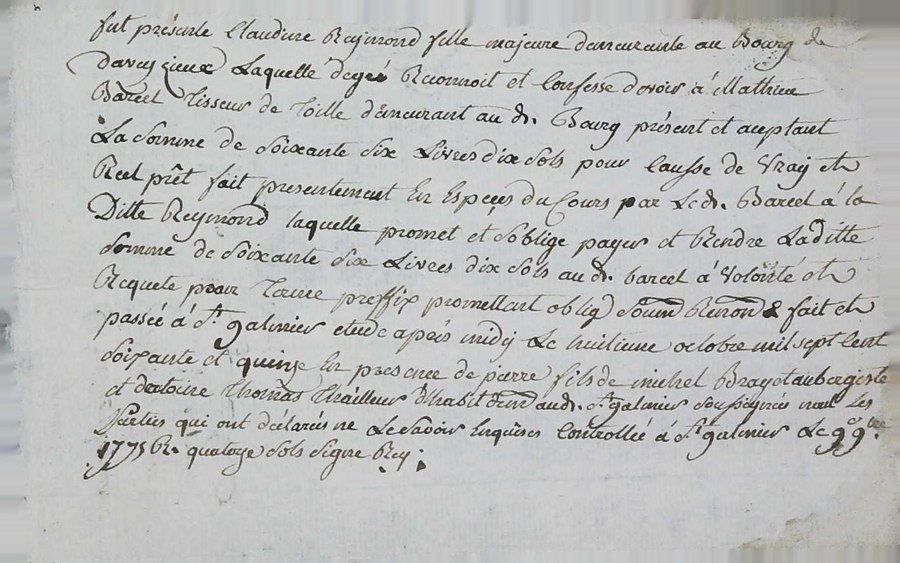 fut présente Claudine Reymond fille majeure demeurante au Bourg de
Daveyzieux Laquelle de gré Reconnoit et Confesse devoir à Mathieu
Barcel Tisseur de Toille demeurant au d. Bourg présent et aceptant
La Somme de Soixante Six Livres dix Sols pour Causse de Vray et
Reel prêt fait presentement En Espeçes du Cours par Le d. Barcel à la
Ditte Reymond laquelle promet et s'oblige payer et Rendre Laditte
Somme de Soixante Six Livres dix Sols au d. barcel à Volonté et
Requete pour Terme preffix promettant oblig Soum Renon & fait et
passée à St. galmier etude après midy Le huitieme octobre mil sept Cent
Soixante et quinze En presence de pierre fils de michel Brayet aubergiste
et Thomas Thailleur D'habit dem au d. St. galmier Soussignés non Les
Parties qui ont déclarés ne Le Savoir Enquises Controllée à St. galmier Le 9 9bre
1775 R. quatorze Sols Signé Rey.